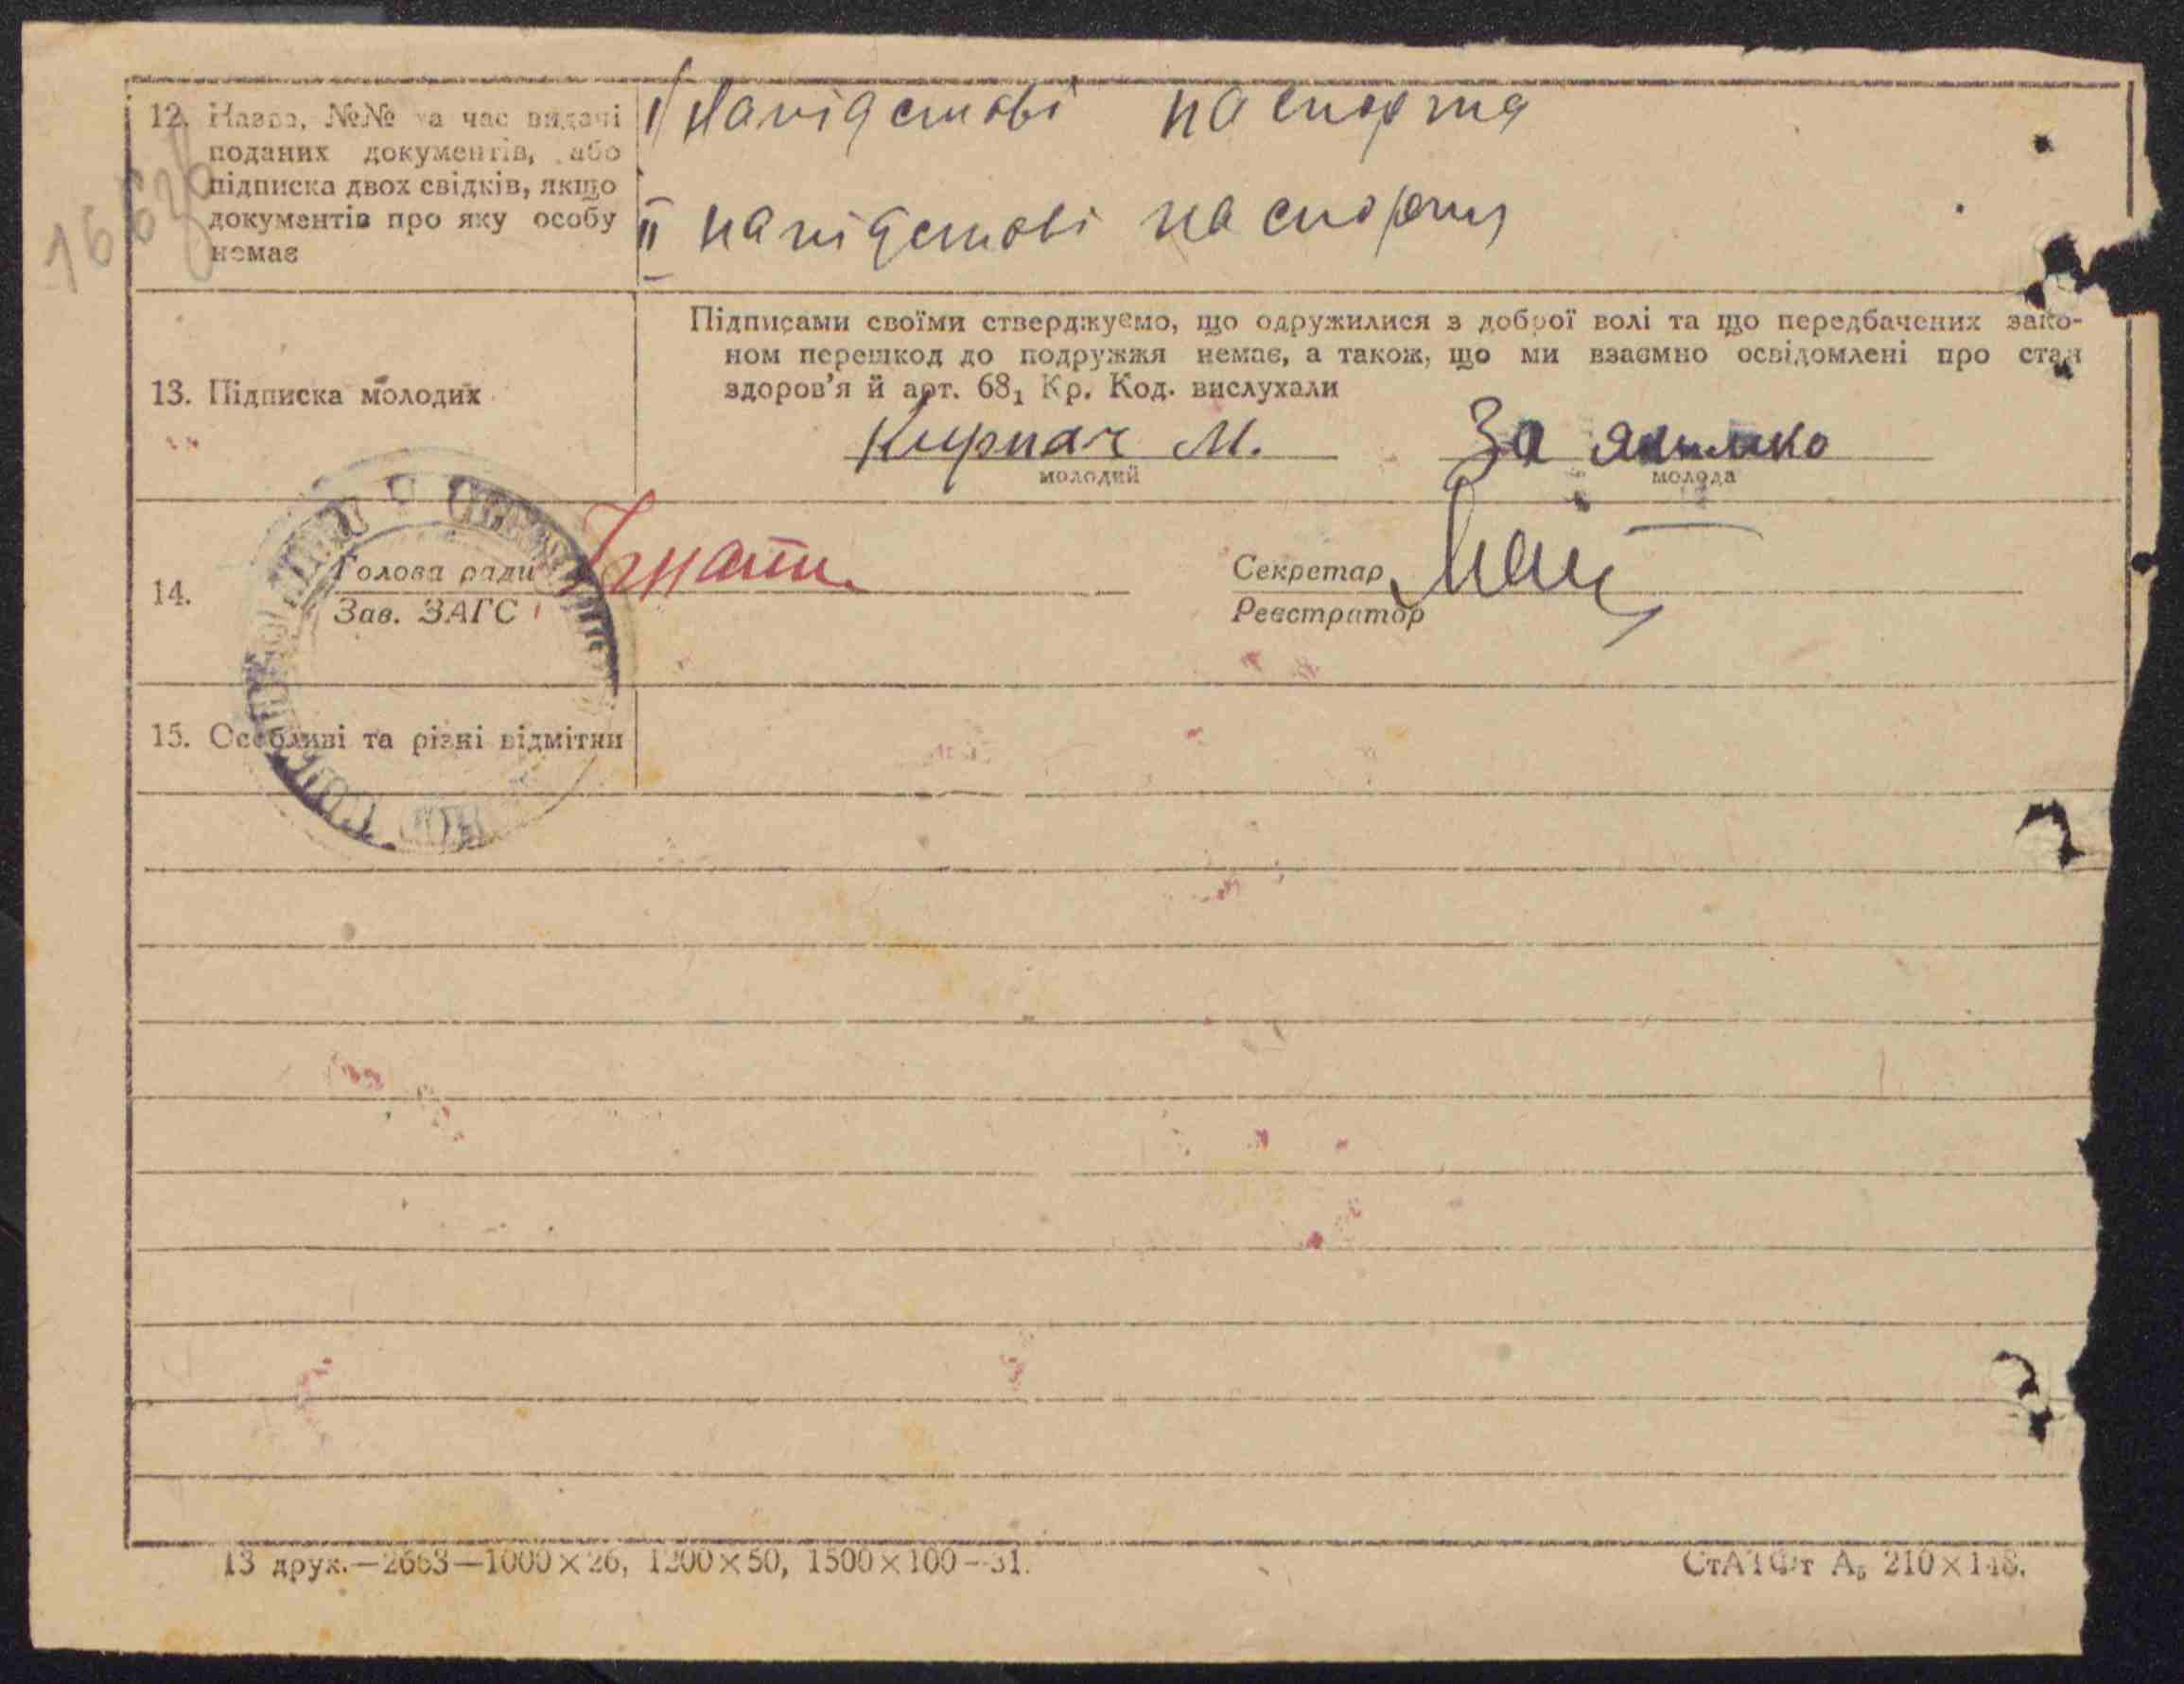 12. Назва, №№ та час видачі
поданих документів, або
підписка двох свідків, якщо
документів про яку особу
немає
І) Напідставі паспорта
ІІ напідставі паспорта
13. Підписка молодих
Підписами своїми стверджуємо, що одружилися з доброї волі та що передбачених зако-
ном перешкод до подружжя немає, а також, що ми взаємно освідомлені про стан
здоров'я й арт. 68₁ Кр. Код. вислухали
Кирпач М. За
молодий молода
14. Голова ради Секретар
Зав. ЗАГС Реєстратор
15. Особливі та різні відмітки
13 друк.—2663—1000×26, 1200×50, 1500×100—31.
СтАТФт А₅ 210×148.